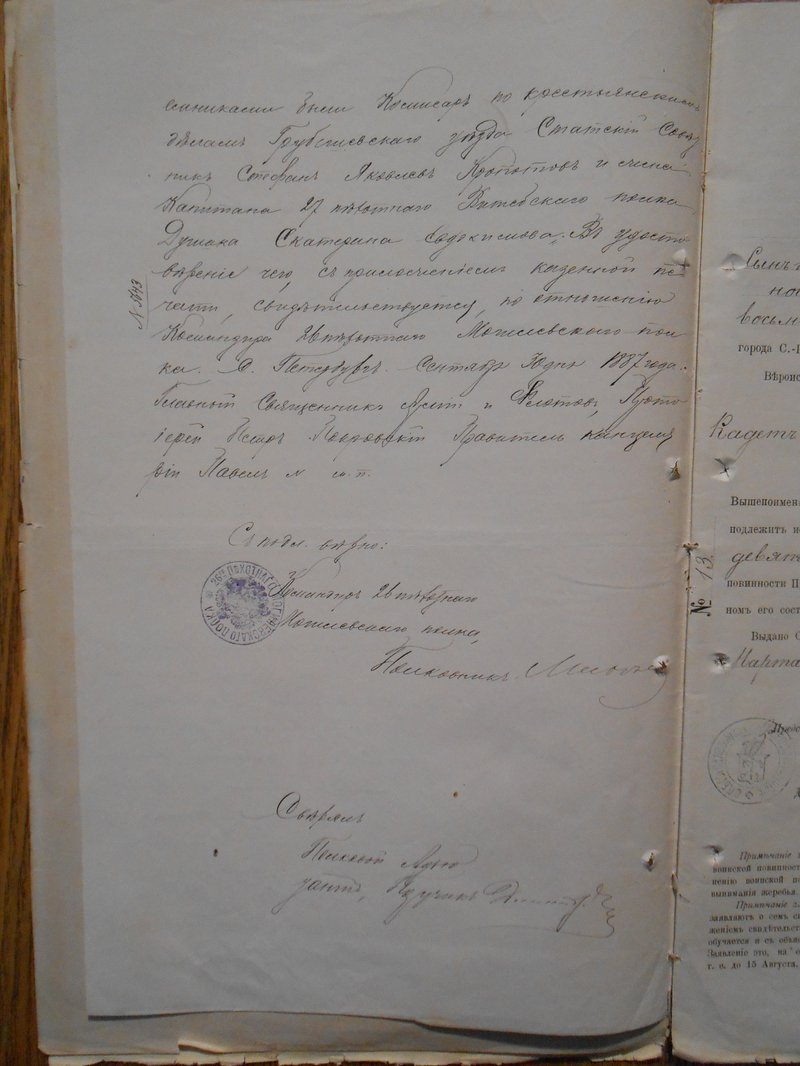 емниками были Комисаръ по крестьянскимъ
дѣламъ Грубешевскаго уѣзда Статскій Совѣт
никъ Стефанъ Яковлевъ и жена
Капитана 27 пѣхотнаго Витебскаго полка
Екатерина Евдокимова. Въ удосто
вѣреніе чего, съ приложеніемъ казенной пе
чати, свидѣтельствуется, по отношенію
Командира 26 пѣхотнаго Могилевскаго пол
ка. С. Петербургъ. Сентября 30 дня 1887 года.
Главный Священникъ Арміи и Флотовъ, Прото
іерей Петръ Покровскій Правитель канцеля
ріи Павелъ м. п.
№ 5643
Съ подл. вѣрно:
Командиръ 26 пѣхотнаго
Могилевскаго полка,
Полковникъ
26го ПѢХОТНАГО МОГИЛЕВСКАГО ПОЛКА
Свѣрялъ
Полковой Адъю
тантъ, Поручикъ
Сынъ
восьм
города С.-П
Вѣроис
Кадетъ
Вышепоимено
подлежитъ и
девят
повинности П
номъ его сост
№ 13.
Выдано С
Марта
Предс
Примѣчаніе 1
воинской повинност
ненію воинской по
выниманія жеребья.
Примѣчаніе 2.
заявляютъ о семъ св
женіемъ свидѣтельств
обучается и съ объяс
Заявленіе это, на о
т. е. до 15 Августа,